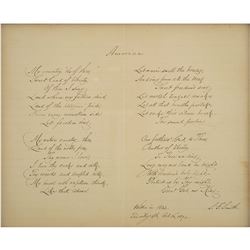 America
My country, 'tis of thee,
Sweet land of liberty,
Of thee I sing;
Land where my fathers died,
Land of the pilgrims' pride,
From every mountain side
Let freedom ring.
My native country, thee,
Land of the noble, free,
Thy name I love;
I love thy rocks and rills,
Thy woods and templed hills;
My heart with rapture thrills,
Like that above.
Let music swell the breeze,
And ring from all the trees
Sweet freedom's song;
Let mortal tongues awake,
Let all that breathe partake,
Let rocks their silence break,
The sound prolong.
Our fathers' God, to Thee,
Author of liberty,
To Thee we sing;
Long may our land be bright
With freedom's holy light;
Protect us by Thy might,
Great God, our King.
Written in 1832.
S. F. Smith.